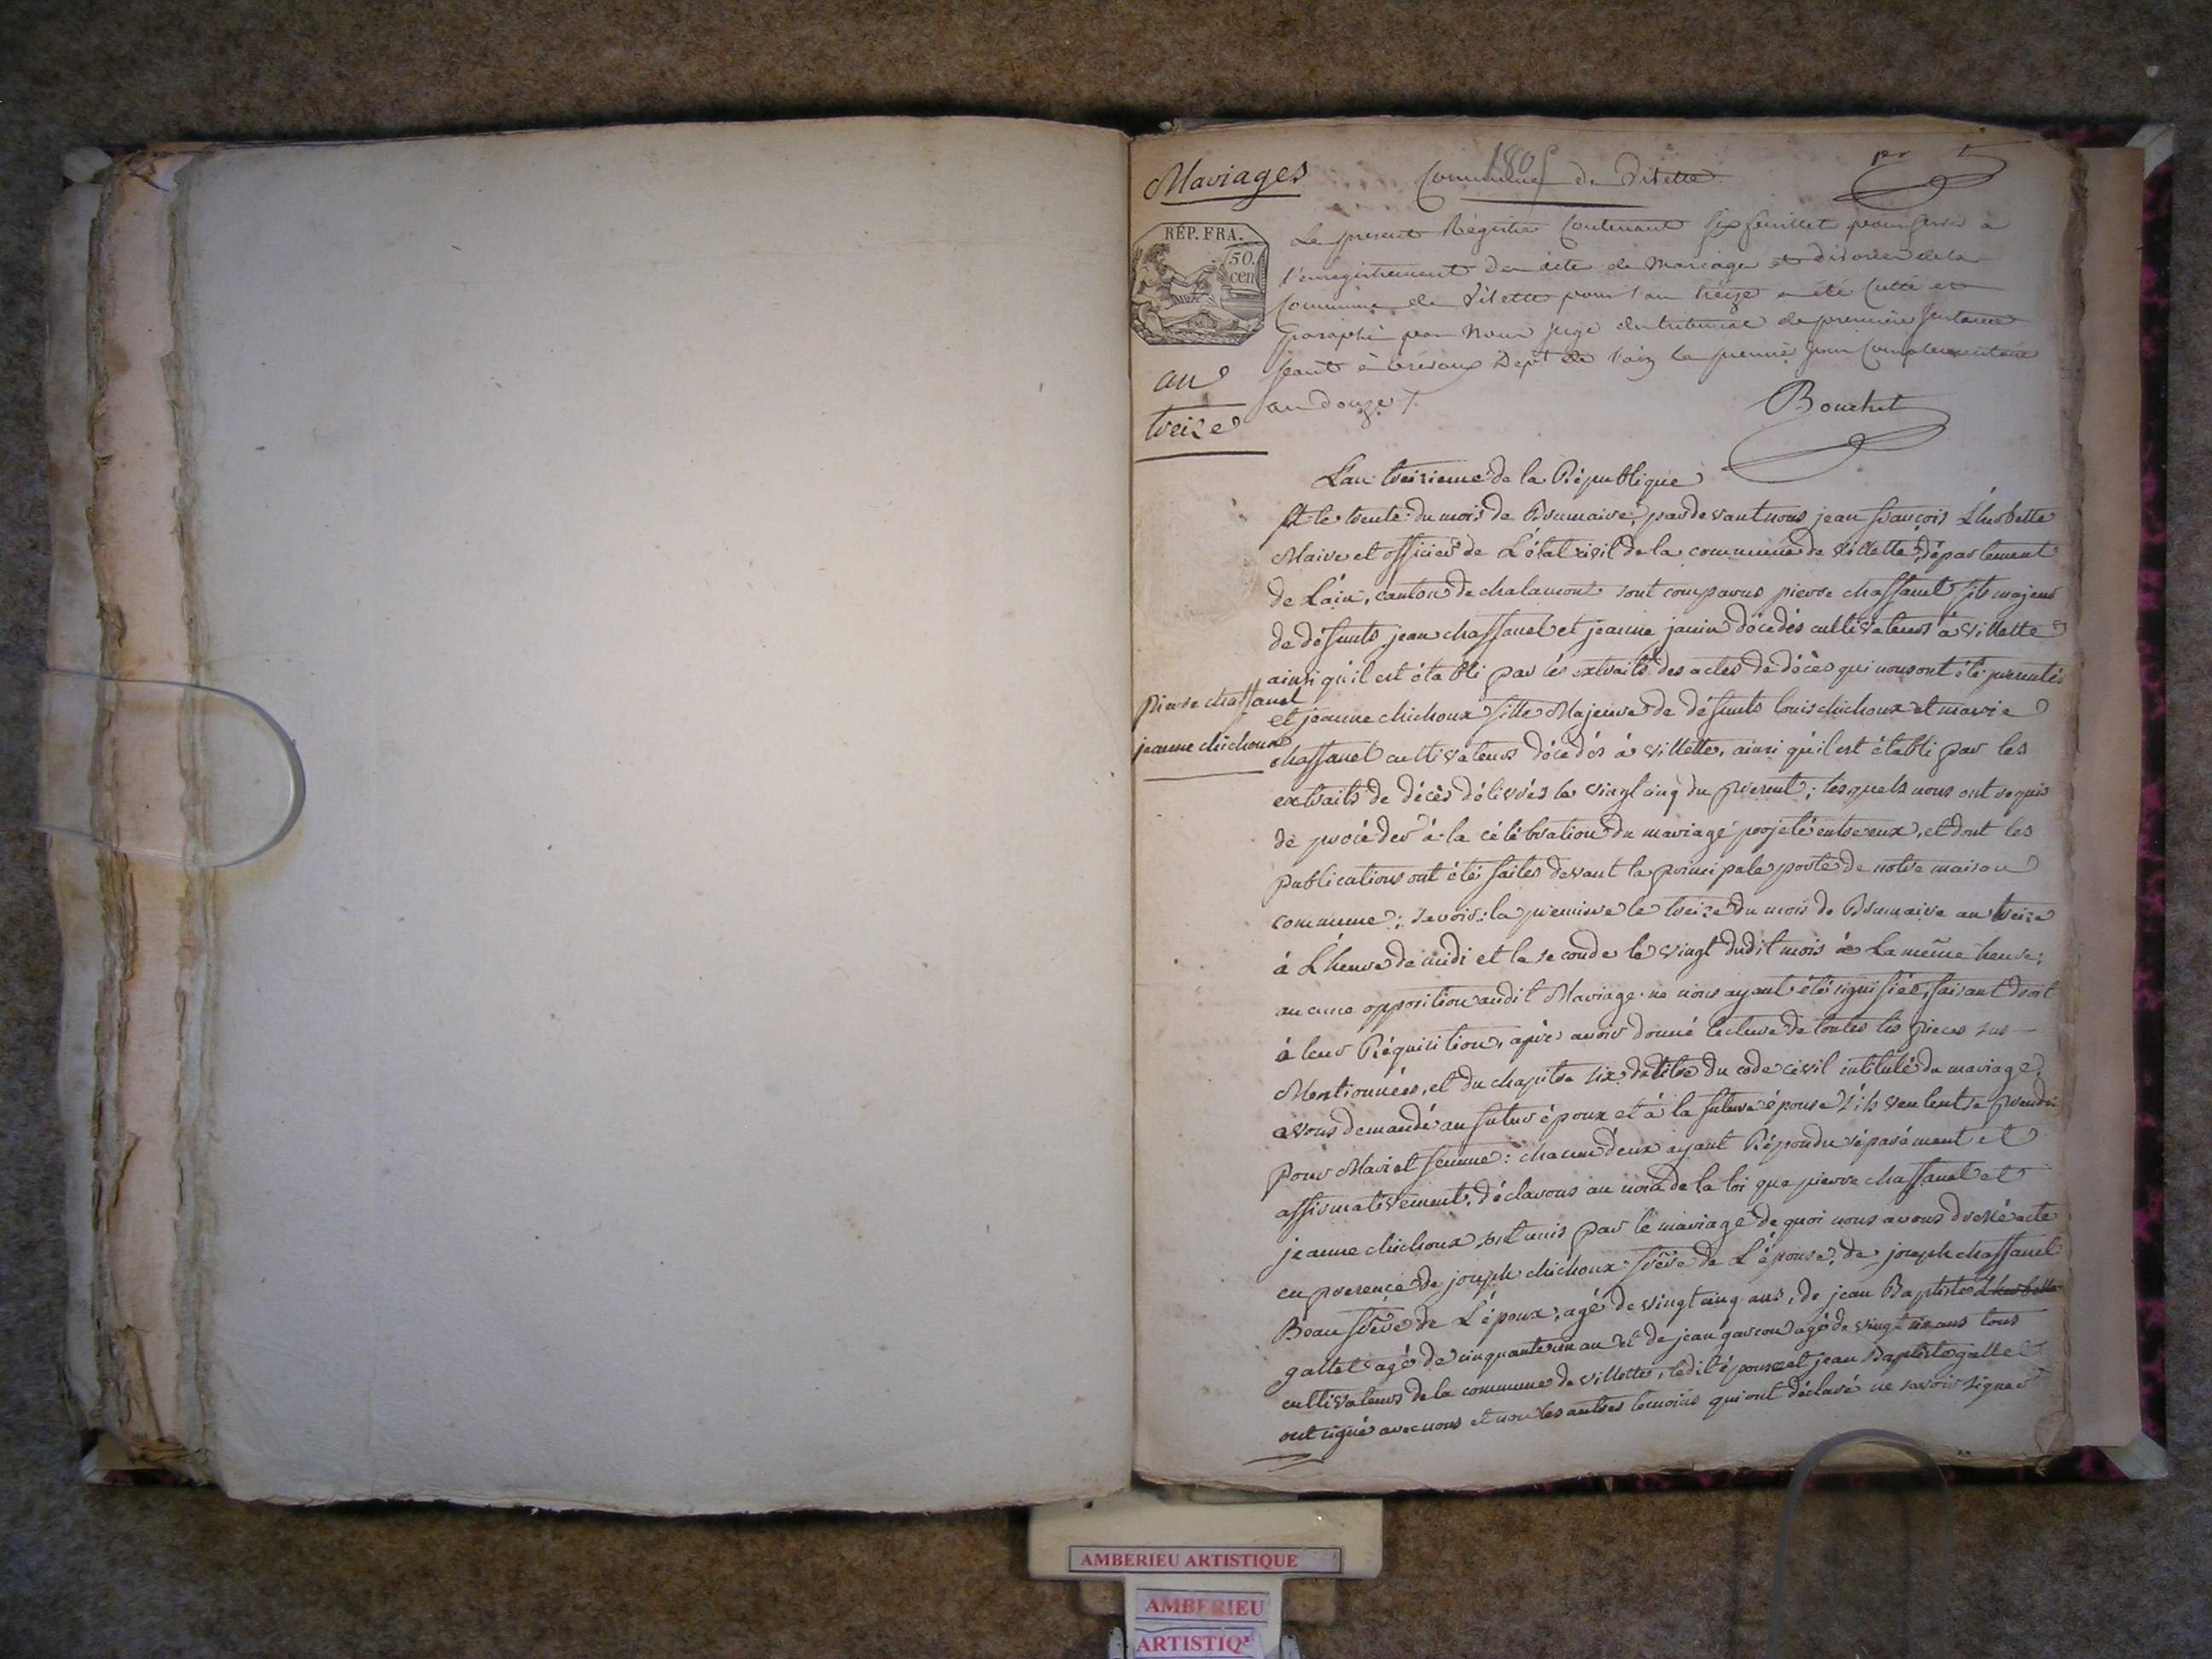 Mariages
1805
Commune de Vilette
1er
RÉP. FRA.
50.
cen
an
treize
Le present Régistre Contenant six feuillets pour servir à
l'enregistrement des acte de Mariage et divorce de la
Commune de Vilette pour l'an treize a été cotté et
Paraphé par Nous juge du tribunal de première instance
séant à trévoux Dept de l'ain le premier jour Complémentaire
an douze /.
Bouchet
L'an treizieme de la République
Et le trente du mois de Brumaire, par devant nous jean françois Lherbette
Maire et officier de L'état civil de la commune de Villette, département
de L'ain, canton de chalamont sont comparus pierre chaffanel fils majeur
de défunts jean chaffanel et jeanne janin décédés cultivateurs à Villette
ainsi qu'il est établi par les extraits des actes de décès qui nous ont été presentés
pierre chaffanel
jeanne chichoux
et jeanne chichoux fille Majeure de défunts louis chichoux et marie
chaffanel cultivateurs décédés à Villette, ainsi qu'il est établi par les
extraits de décès délivrés le vingt cinq du present; lesquels nous ont requis
de procéder à la célébration du mariage projeté entre eux, et dont les
publications ont été faites devant la principale porte de notre maison
commune; savoir: la premiere le treize du mois de Brumaire an treize
à L'heure de midi et la seconde le vingt dudit mois à La même heure;
aucune opposition audit Mariage ne nous ayant été signifiée, faisant droit
à leur Réquisition, après avoir donné lecture de toutes les pieces sus
Mentionnées, et du chapitre six du titre du code civil intitulé du mariage,
avons demandé au futur époux et à la future épouse s'ils veulent se prendre
pour Mari et femme: chacun d'eux ayant Répondu séparément et
affirmativement, déclarons au nom de la loi que pierre chaffanel et
jeanne chichoux sont unis par le mariage de quoi nous avons dressé acte
en presence de joseph chichoux frère de L'épouse, de joseph chaffanel
Beau frère de L'époux, agé de vingt cinq ans, de jean Baptiste Lherbette
gallet agé de cinquante un an et de jean garcon agé de vingt six ans tous
cultivateurs de la commune de Villette, ledit époux et jean Baptiste gallet
ont signé avec nous et non les autres temoins qui ont déclaré ne savoir signer
AMBERIEU ARTISTIQUE
AMBERIEU
ARTISTIQ